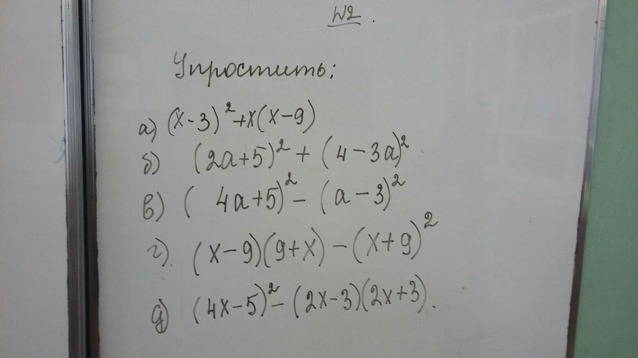 №2.
Упростить:
а) (x-3)²+x(x-9)
б) (2a+5)²+(4-3a)²
в) (4a+5)²-(a-3)²
г) (x-9)(9+x)-(x+9)²
д) (4x-5)²-(2x-3)(2x+3).